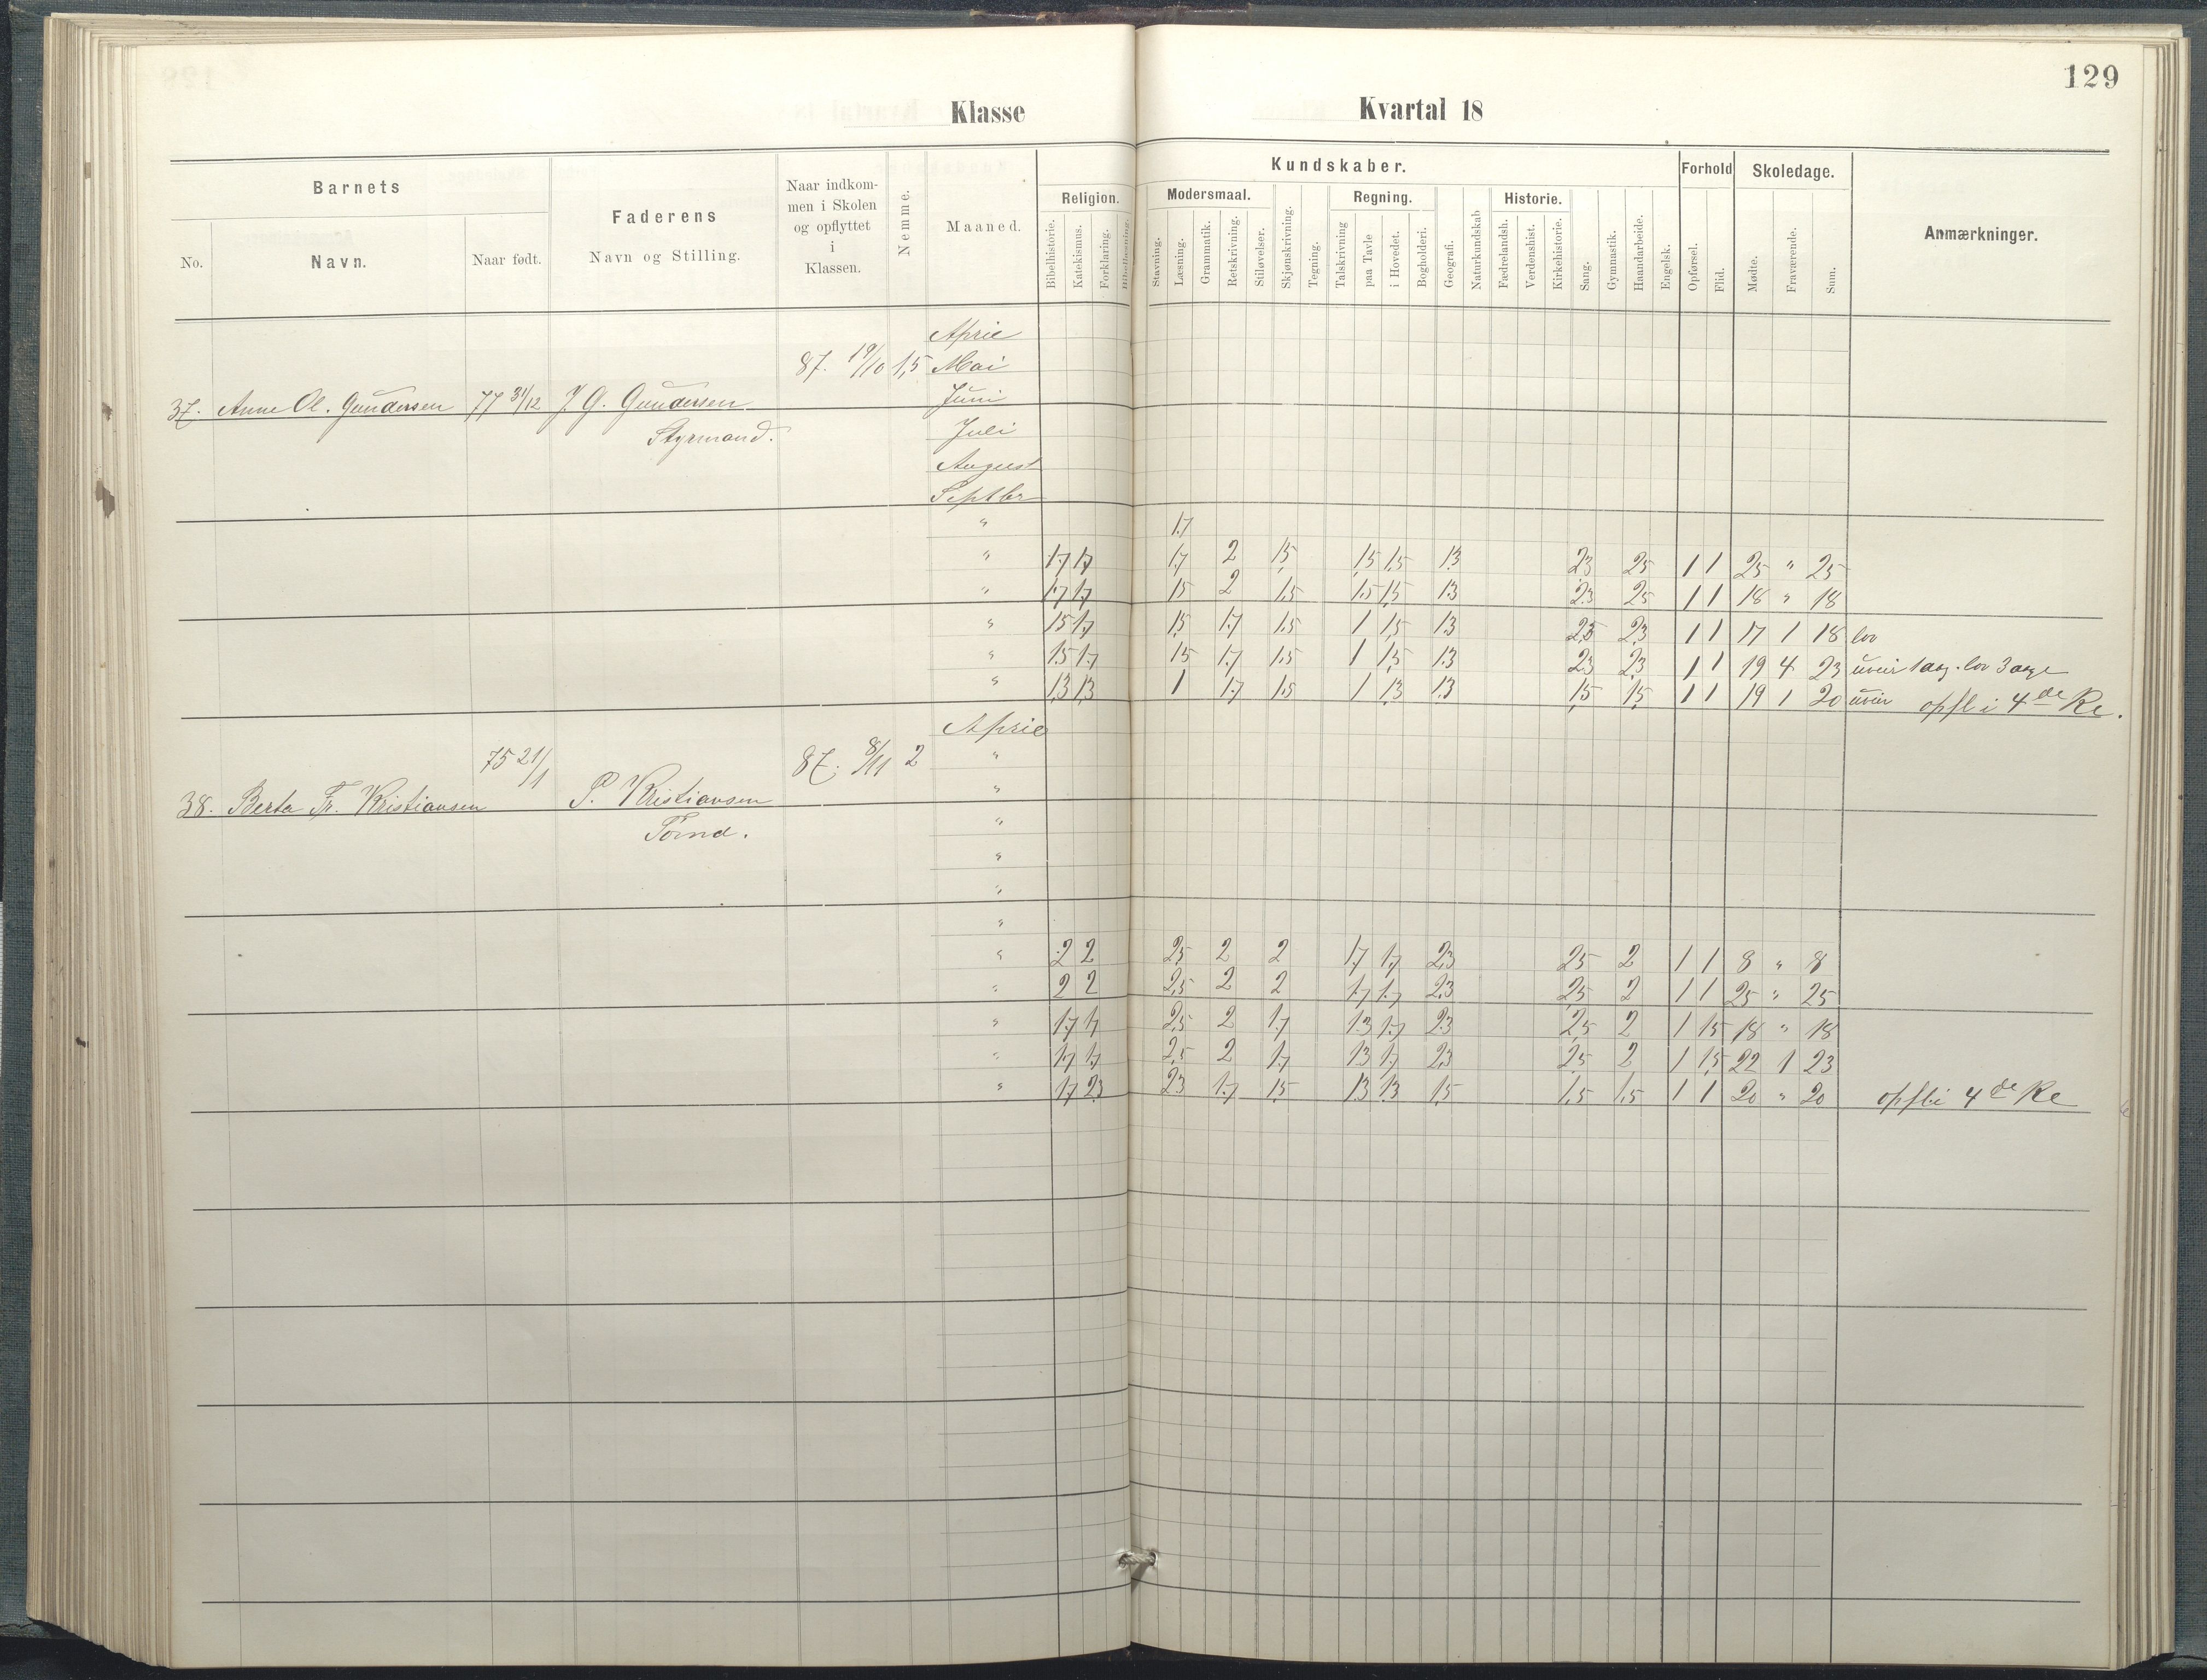 129
Klasse Kvartal 18
Barnets
No. Navn. Naar født.
Faderens
Navn og Stilling.
Naar indkom-
men i Skolen
og opflyttet
i
Klassen.
Nemme.
Maaned.
Kundskaber.
Religion.
Bibelhistorie. Katekismus. Forklaring. Bibellæsning.
Modersmaal.
Stavning. Læsning. Grammatik. Retskrivning. Stiløvelser.
Skjønskrivning. Tegning.
Regning.
Talskrivning paa Tavle i Hovedet. Bogholderi.
Geografi. Naturkundskab
Historie.
Fædrelandsh. Verdenshist. Kirkehistorie.
Sang. Gymnastik. Haandarbeide. Engelsk.
Forhold
Opførsel. Flid.
Skoledage.
Mødte. Fraværende. Sum.
Anmærkninger.
April
87. 19/10 1,5 Mai
37. Anne Ol. Gundersen 77 31/12 J. G. Gundersen Juni
Styrmand. Juli
August
Septbr
" 1.7
" 1.7 1.7 1.7 2 1.5 1.5 1.5 1.3 2.3 2.5 1 1 25 " 25
" 1.7 1.7 1.5 2 1.5 1.5 1.5 1.3 2.3 2.5 1 1 18 " 18
" 1.5 1.7 1.5 1.7 1.5 1 1.5 1.3 2.3 2.3 1 1 17 1 18 lov
" 1.5 1.7 1.5 1.7 1.5 1 1.5 1.3 2.3 2.3 1 1 19 4 23 uveir 1 dag. lov 3 dage
" 1.3 1.3 1 1.7 1.5 1 1.3 1.3 1.5 1.5 1 1 19 1 20 uveir opfl i 4de Kl.
April
75 21/1 87. 8/11 2 "
38. Berta Fr. Kristiansen P. Kristiansen "
Tømd. "
"
"
"
" 2 2 2.5 2 2 1.7 1.7 2.3 2.5 2 1 1 8 " 8
" 2 2 2.5 2 2 1.7 1.7 2.3 2.5 2 1 1 25 " 25
" 1.7 1.7 2.5 2 1.7 1.3 1.7 2.3 2.5 2 1 1.5 18 " 18
" 1.7 1.7 2.5 2 1.7 1.3 1.7 2.3 2.5 2 1 1.5 22 1 23
" 1.7 2.3 2.3 1.7 1.5 1.3 1.3 1.5 1.5 1.5 1 1 20 " 20 opfl i 4de Kl